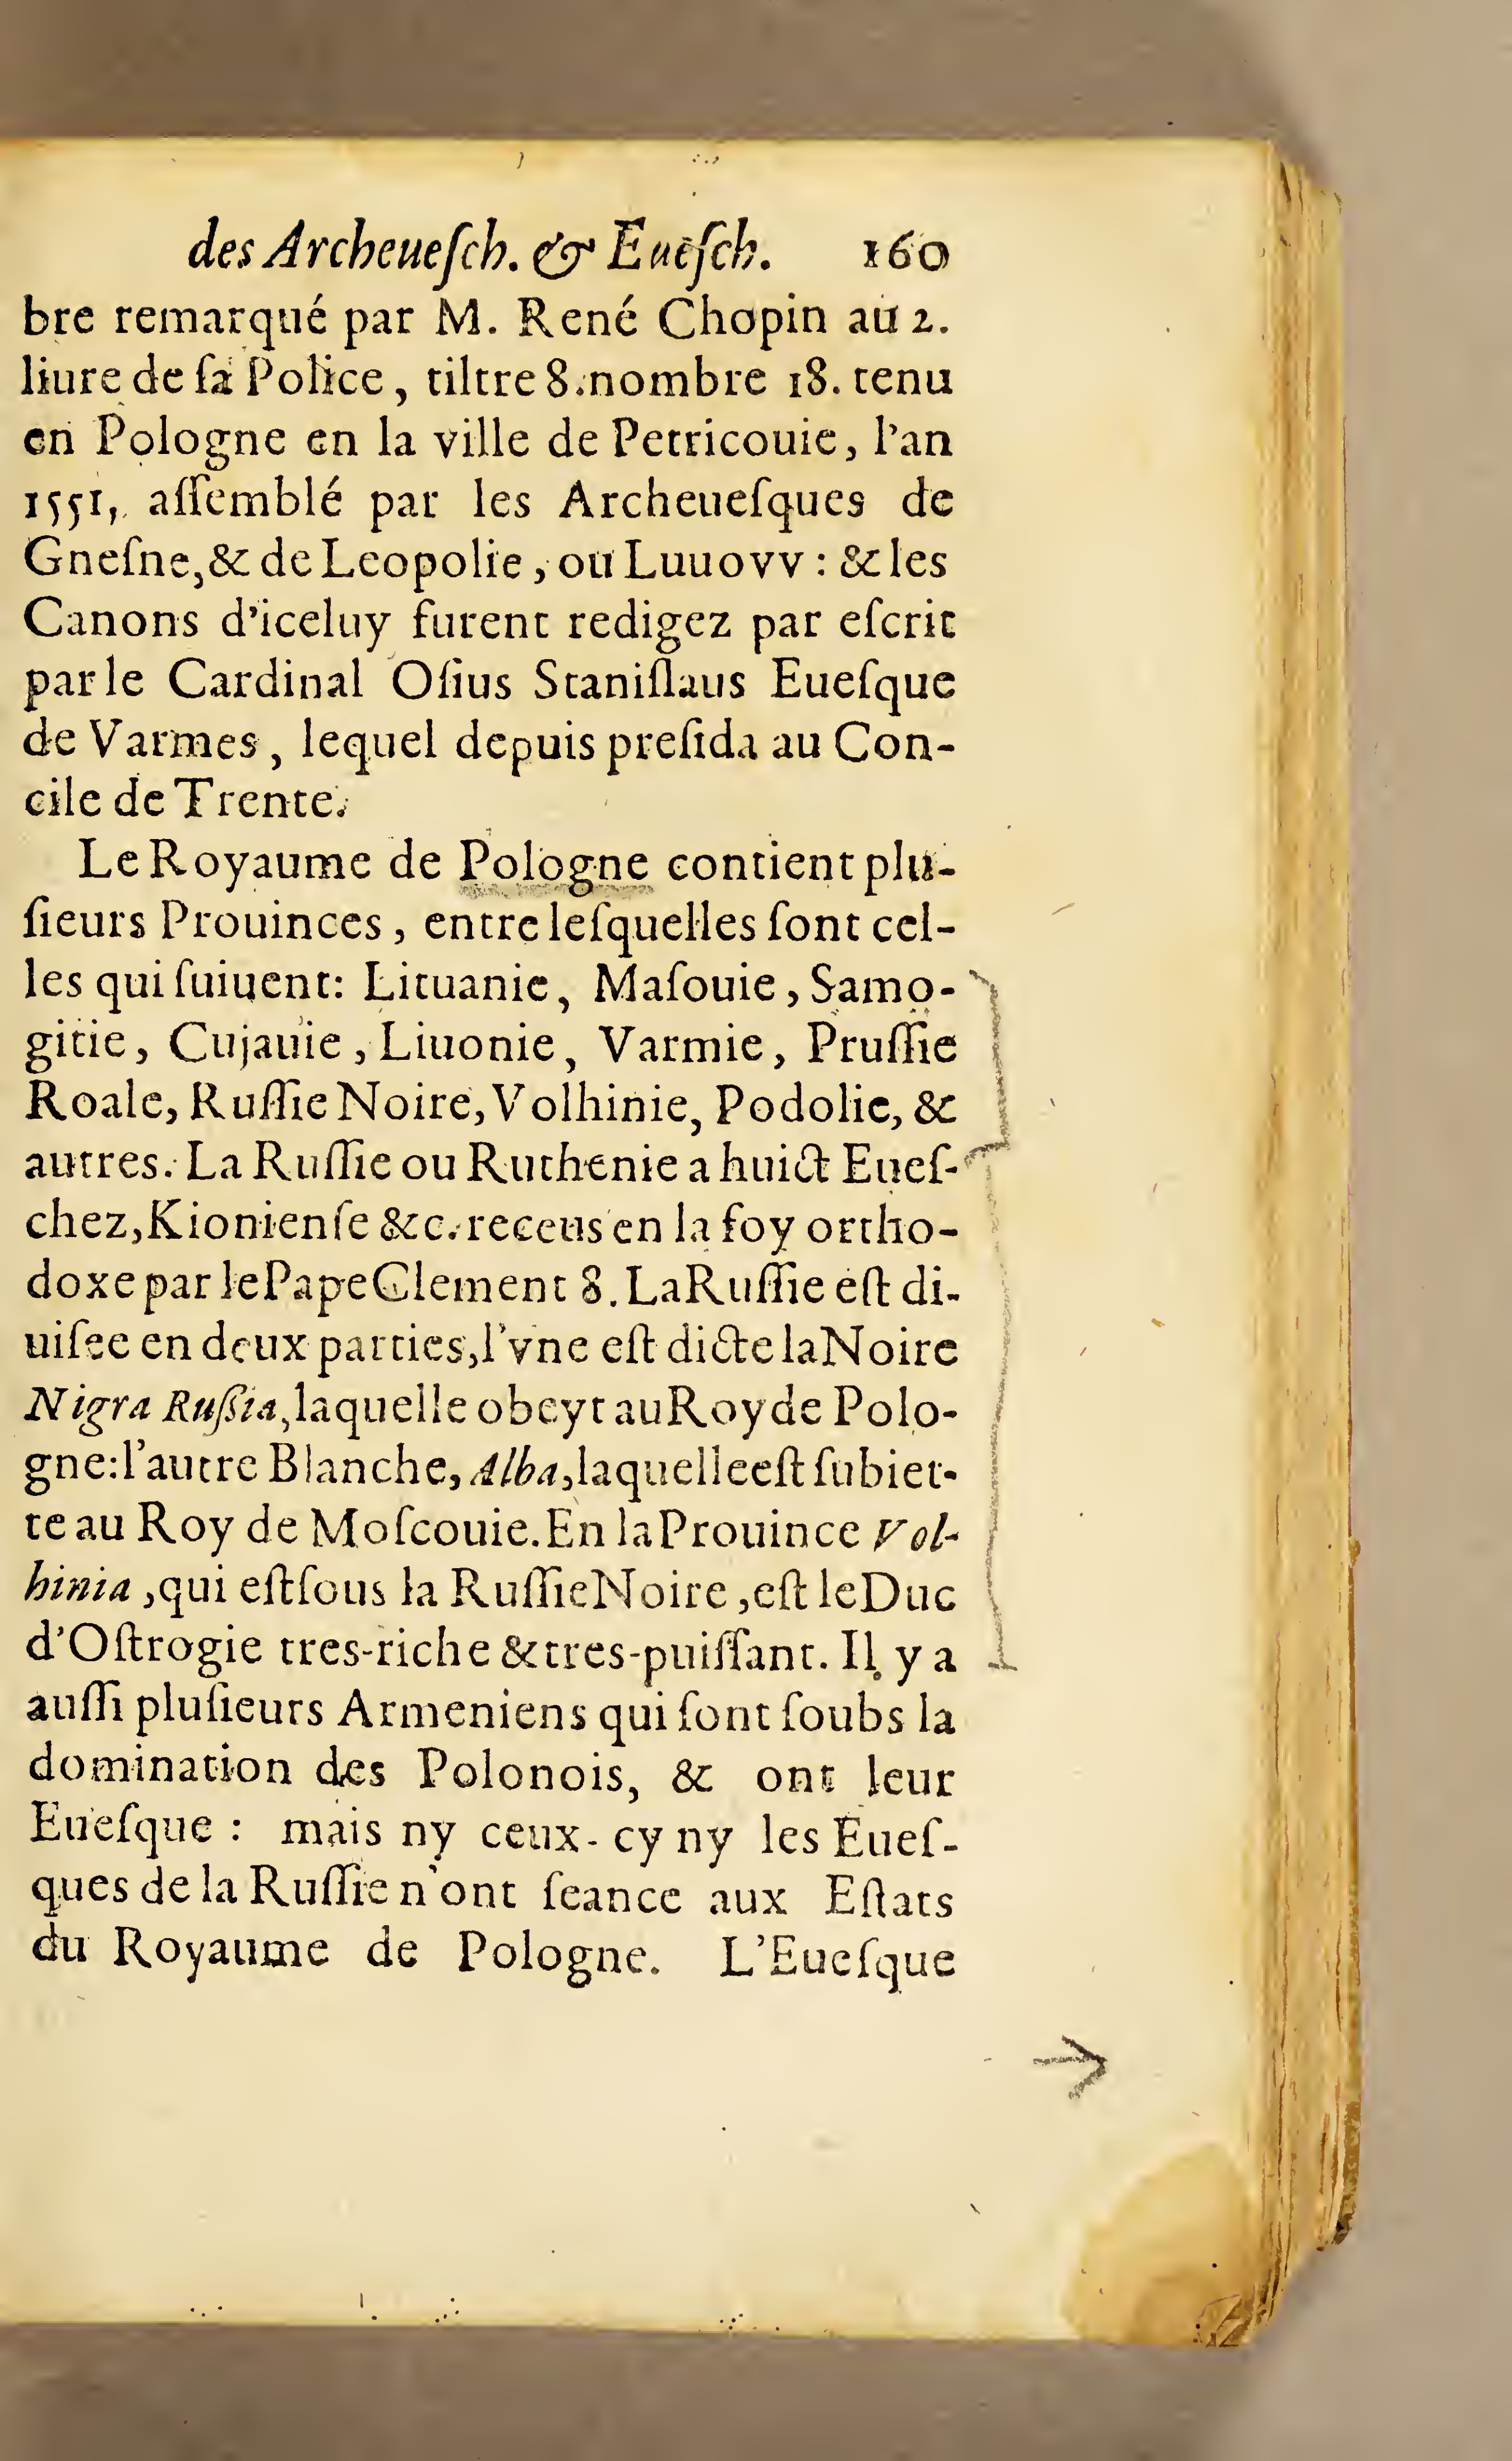 des Archeueſch. & Eueſch. 160
bre remarqué par M. René Chopin au 2.
liure de ſa Police, tiltre 8. nombre 18. tenu
en Pologne en la ville de Petricouie, l'an
1551, aſſemblé par les Archeueſques de
Gneſne, & de Leopolie, ou Luuovv : & les
Canons d'iceluy furent redigez par eſcrit
par le Cardinal Oſius Staniſlaus Eueſque
de Varmes, lequel depuis preſida au Con-
cile de Trente.
Le Royaume de Pologne contient plu-
ſieurs Prouinces, entre leſquelles ſont cel-
les qui ſuiuent: Lituanie, Maſouie, Samo-
gitie, Cujauie, Liuonie, Varmie, Pruſſie
Roale, Ruſſie Noire, Volhinie, Podolie, &
autres. La Ruſſie ou Ruthenie a huict Eueſ-
chez, Kionienſe &c. receus en la foy ortho-
doxe par le Pape Clement 8. La Ruſſie eſt di-
uiſee en deux parties, l'vne eſt dicte la Noire
Nigra Ruſſia, laquelle obeyt au Roy de Polo-
gne: l'autre Blanche, Alba, laquelle eſt ſubiet-
te au Roy de Moſcouie. En la Prouince Vol-
hinia, qui eſt ſous la Ruſſie Noire, eſt le Duc
d'Oſtrogie tres-riche & tres-puiſſant. Il y a
auſſi pluſieurs Armeniens qui ſont ſoubs la
domination des Polonois, & ont leur
Eueſque : mais ny ceux-cy ny les Eueſ-
ques de la Ruſſie n'ont ſeance aux Eſtats
du Royaume de Pologne. L'Eueſque